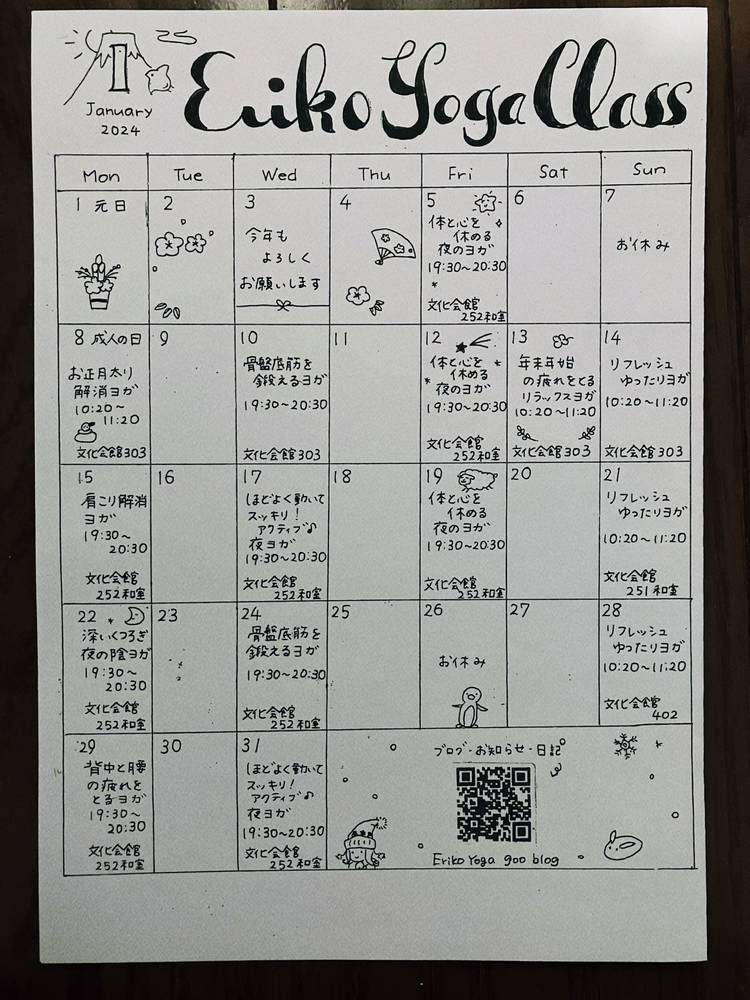 1
January
2024
Eriko Yoga Class
Mon Tue Wed Thu Fri Sat Sun
1 元日
2
3
今年も
よろしく
お願いします
4
5
体と心を
休める
夜のヨガ
19:30~20:30
文化会館
252和室
6
7
お休み
8 成人の日
お正月太り
解消ヨガ
10:20~
11:20
文化会館303
9
10
骨盤底筋を
鍛えるヨガ
19:30~20:30
文化会館303
11
12
体と心を
休める
夜のヨガ
19:30~20:30
文化会館
252和室
13
年末年始
の疲れをとる
リラックスヨガ
10:20~11:20
文化会館303
14
リフレッシュ
ゆったりヨガ
10:20~11:20
文化会館303
15
肩こり解消
ヨガ
19:30~
20:30
文化会館
252和室
16
17
ほどよく動いて
スッキリ!
アクティブ♪
夜ヨガ
19:30~20:30
文化会館
252和室
18
19
体と心を
休める
夜のヨガ
19:30~20:30
文化会館
252和室
20
21
リフレッシュ
ゆったりヨガ
10:20~11:20
文化会館
251和室
22
深いくつろぎ
夜の陰ヨガ
19:30~
20:30
文化会館
252和室
23
24
骨盤底筋を
鍛えるヨガ
19:30~20:30
文化会館
252和室
25
26
お休み
27
28
リフレッシュ
ゆったりヨガ
10:20~11:20
文化会館
402
29
背中と腰
の疲れを
とるヨガ
19:30~
20:30
文化会館
252和室
30
31
ほどよく動いて
スッキリ!
アクティブ♪
夜ヨガ
19:30~20:30
文化会館
252和室
ブログ・お知らせ・日記
Eriko Yoga goo blog